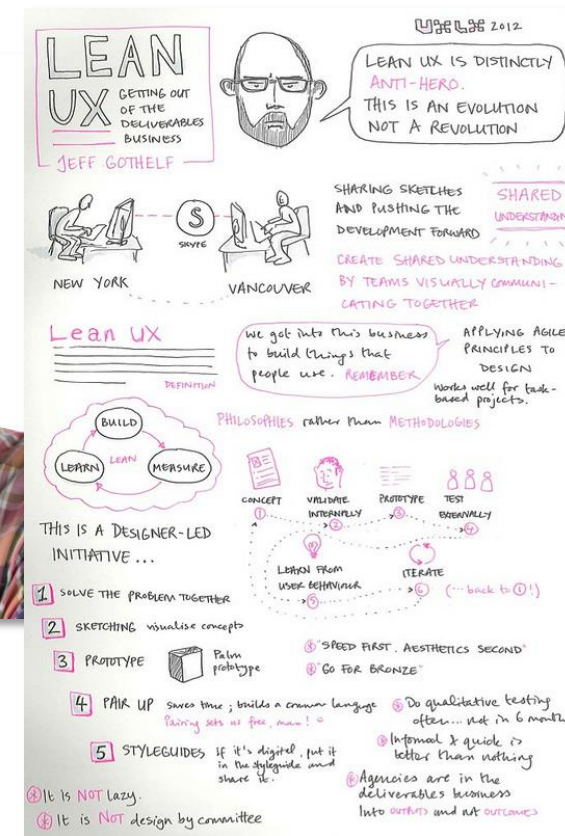 LEAN
UX
GETTING OUT
OF THE
DELIVERABLES
BUSINESS
JEFF GOTHELF
UXLX 2012
LEAN UX IS DISTINCTLY
ANTI-HERO.
THIS IS AN EVOLUTION
NOT A REVOLUTION
S
SKYPE
NEW YORK
VANCOUVER
SHARING SKETCHES
AND PUSHING THE
DEVELOPMENT FORWARD
SHARED
UNDERSTANDIN
CREATE SHARED UNDERSTANDING
BY TEAMS VISUALLY COMMUNI-
CATING TOGETHER
Lean UX
DEFINITION
We got into this business
to build things that
people use. REMEMBER
APPLYING AGILE
PRINCIPLES TO
DESIGN
Works well for task-
based projects.
BUILD
LEAN
LEARN
MEASURE
PHILOSOPHIES rather than METHODOLOGIES
CONCEPT
1
VALIDATE
INTERNALLY
2
PROTOTYPE
3
TEST
EXTERNALLY
4
LEARN FROM
USER BEHAVIOUR
5
ITERATE
6
(...back to 1!)
THIS IS A DESIGNER-LED
INITIATIVE...
1 SOLVE THE PROBLEM TOGETHER
2 SKETCHING visualise concepts
3 PROTOTYPE
Palm
prototype
* "SPEED FIRST. AESTHETICS SECOND"
* "GO FOR BRONZE"
4 PAIR UP saves time; builds a common language
Pairing sets us free, man!
5 STYLEGUIDES
If it's digital, put it
in the styleguide and
share it.
* Do qualitative testing
often... not in 6 month
* Informal & quick is
better than nothing
* Agencies are in the
deliverables business
Into OUTPUTS and not OUTCOMES
* It Is NOT lazy.
* It is NOT design by committee